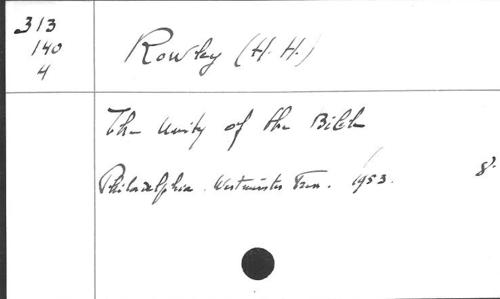 313
140
4
Rowley (H. H.)
The Unity of the Bible
Philadelphia. Westminster Press. 1953. 8.